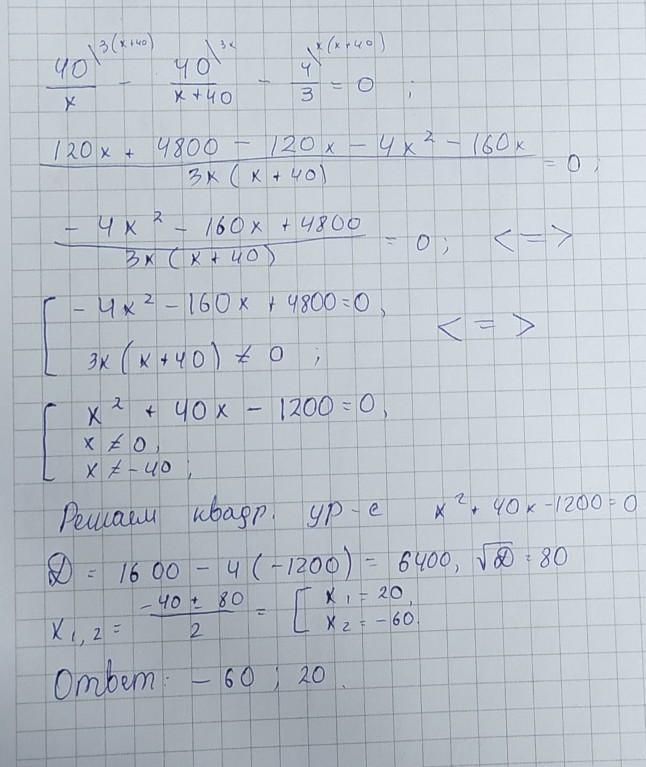 40\3(x+40) / x - 40\3x / x+40 - 4\x(x+40) / 3 = 0 ;
120x + 4800 - 120x - 4x² - 160x / 3x(x+40) = 0 ;
-4x² - 160x + 4800 / 3x(x+40) = 0 ; <=>
[ -4x² - 160x + 4800 = 0 , <=>
3x(x+40) ≠ 0 ;
[ x² + 40x - 1200 = 0 ,
x ≠ 0 ,
x ≠ -40 ;
Решаем квадр. ур-е x² + 40x - 1200 = 0
D = 1600 - 4(-1200) = 6400, √D = 80
x1,2 = -40 ± 80 / 2 = [ x1 = 20,
x2 = -60.
Ответ: -60 ; 20.